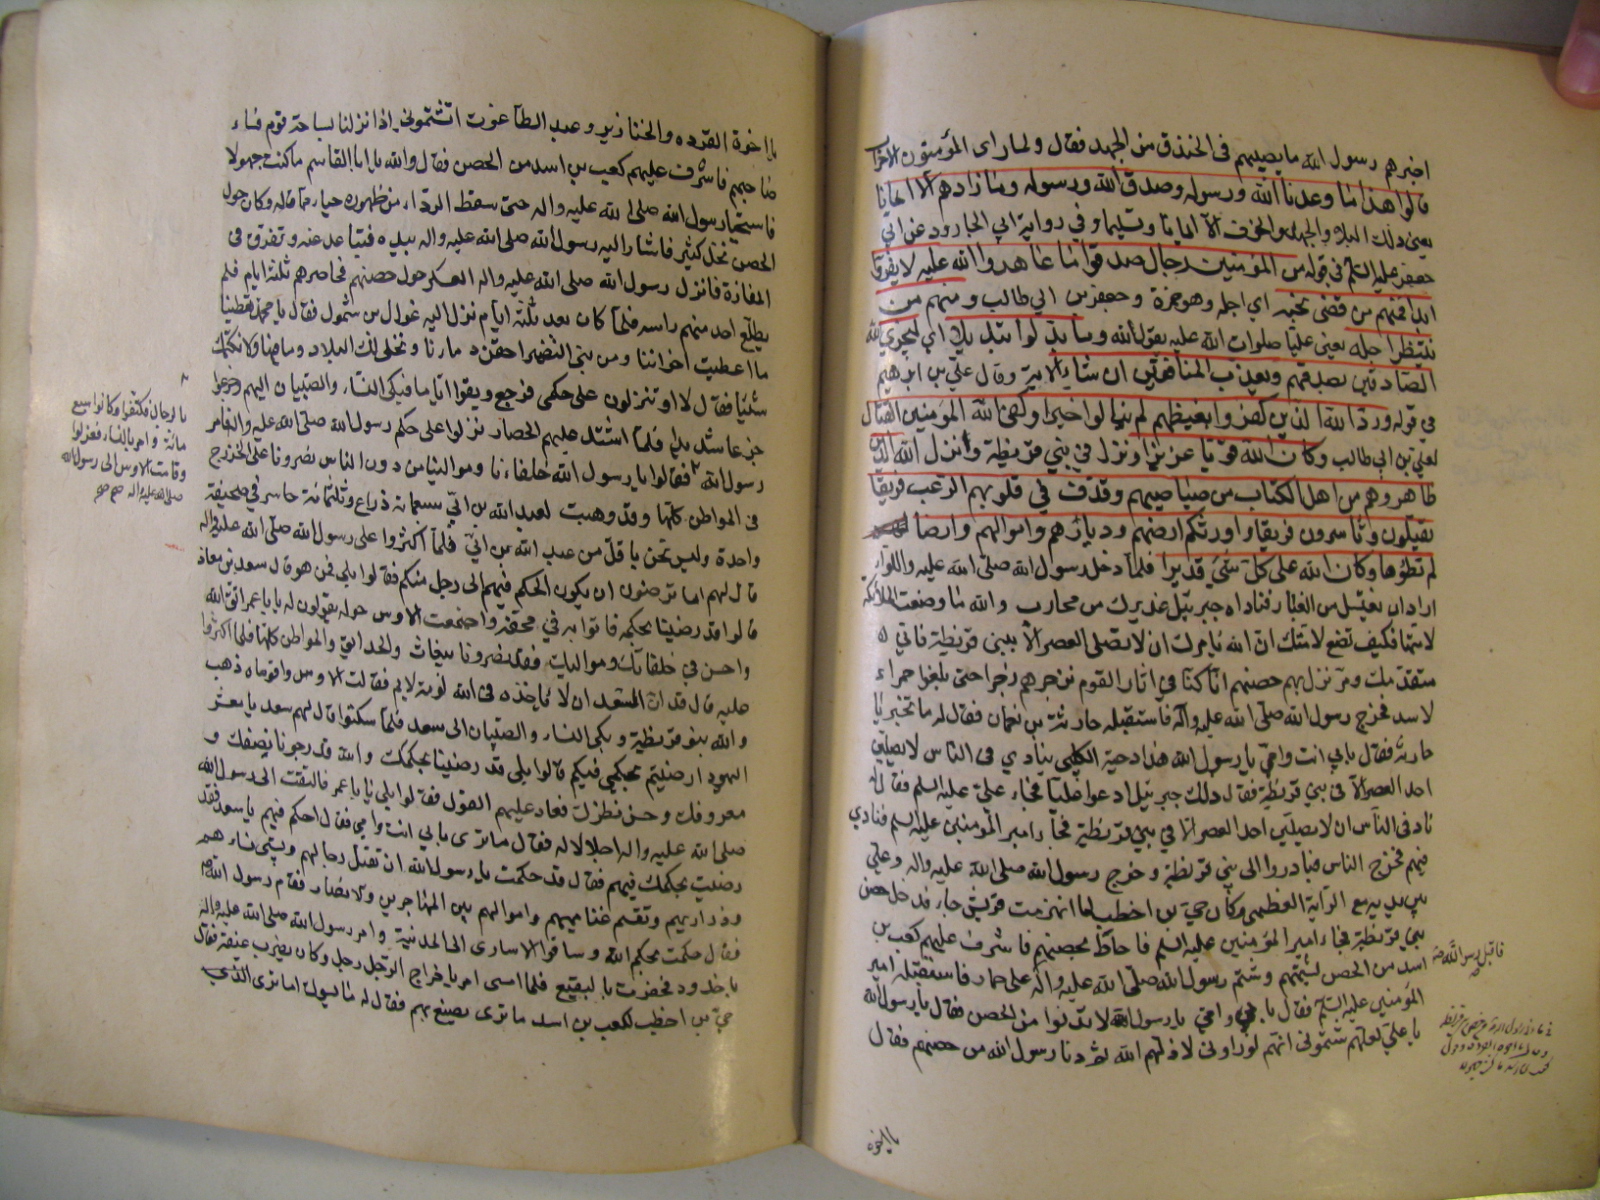 اخبرهم رسول الله ما يصيبهم في الخندق من الجهد فقال ولما راى المؤمنون الاحزاب
قالوا هذا ما وعدنا الله ورسوله وصدق الله ورسوله وما زادهم الا ايمانا
يعني ذلك البلاء والجهد والخوف الا ايمانا وتسليما وفي رواية ابي الجارود عن ابي
جعفر عليه السلم في قوله من المؤمنين رجال صدقوا ما عاهدوا الله عليه لا يفروا
ابدا فمنهم من قضى نحبه اي اجله وهو حمزة وجعفر بن ابي طالب ومنهم من
ينتظر اجله يعني عليا صلوات الله عليه يقول الله وما بدلوا تبديلا اي ليجزي الله
الصادقين بصدقهم ويعذب المنافقين ان شاء الاية وقال علي بن ابرهيم
في قوله ورد الله الذين كفروا بغيظهم لم ينالوا خيرا وكفى الله المؤمنين القتال
لعلي بن ابي طالب وكان الله قويا عزيزا ونزل في بني قريظة وانزل الله الذين
ظاهروهم من اهل الكتاب من صياصيهم وقذف في قلوبهم الرعب فريقا
تقتلون وتاسرون فريقا واورثكم ارضهم وديارهم واموالهم وارضا
لم تطؤها وكان الله على كل شئ قديرا فلما دخل رسول الله صلى الله عليه واله واللواء
اراد ان يغتسل من الغبار فناداه جبرئيل عذيرك من محارب والله ما وضعت الملائكة
لامتها فكيف تضع لامتك ان الله يامرك ان لا تصلي العصر الا ببني قريظة فاني
متقدمك ومزلزل بهم حصنهم انا كنا في اثار القوم نزجرهم زجرا حتى بلغوا حمراء
الاسد فخرج رسول الله صلى الله عليه واله فاستقبله حارثة بن نعمان فقال له ما الخبر يا
حارثة فقال بابي انت وامي يا رسول الله هذا دحية الكلبي ينادي في الناس لا يصلين
احد العصر الا في بني قريظة فقال ذلك جبرئيل ادعوا عليا فجاء علي عليه السلم فقال له
ناد في الناس ان لا يصلين احد العصر الا في بني قريظة فجاء امير المؤمنين عليه السلم فنادى
فيهم فخرج الناس فبادروا الى بني قريظة وخرج رسول الله صلى الله عليه واله وعلي
بين يديه مع الراية العظمى وكان حي بن اخطب لما انهزمت قريش جاء فدخل حصن
بني قريظة فجاء امير المؤمنين عليه السلم فاحاط بحصنهم فاشرف عليهم كعب بن
اسد من الحصن يشتمهم ويشتم رسول الله صلى الله عليه واله على حمار فاستقبله امير
المؤمنين عليه السلم فقال بابي وامي يا رسول الله لا تدنوا من الحصن فقال يا رسول الله
يا علي لعلهم شتموني انهم لو راوني لاذلهم الله ثم دنا رسول الله من حصنهم فقال
فاقبل رسول الله
يا اخوة
يا اخوة القردة والخنازير وعبد الطاغوت اتشتموني اذا نزلنا بساحة قوم فساء
صباحهم فاشرف عليهم كعب بن اسد من الحصن فقال والله يا ابا القاسم ما كنت جهولا
فاستحيا رسول الله صلى الله عليه واله حتى سقط الرداء من ظهره حياء مما قاله وكان حول
الحصن نخل كثير فاشار اليه رسول الله صلى الله عليه واله بيده فتباعد عنه وتفرق في
المفازة فانزل رسول الله صلى الله عليه واله العسكر حول حصنهم فحاصرهم ثلثة ايام فلم
يطلع احد منهم راسه فلما كان بعد ثلثة ايام نزل اليه غوال بن شمول فقال يا محمد تعطينا
ما اعطيت اخواننا من بني النضير احقن دمارنا ونخلي لك البلاد وما فيها ولا نكتمك
شيئا فقال لا او تنزلون على حكمي فرجع وبقوا اياما فبكى النساء والصبيان اليهم وجزعوا
جزعا شديدا فلما اشتد عليهم الحصار نزلوا على حكم رسول الله صلى الله عليه واله فامر
رسول الله فقالوا يا رسول الله حلفاءنا وموالينا من دون الناس نصرونا على الخزرج
في المواطن كلها وقد وهبت لعبد الله بن ابي سبعمائة ذراع وثلثمائة حاسر في صحيفة
واحدة ولسنا نحن باقل من عبد الله بن ابي فلما اكثروا على رسول الله صلى الله عليه واله
قال لهم اما ترضون ان يكون الحكم فيهم الى رجل منكم فقالوا بلى فمن هو قال سعد بن معاذ
قالوا قد رضينا بحكمه فاتوا به في محفة واجتمعت الاوس حوله يقولون له يا با عمر اتق الله
واحسن في حلفائك ومواليك فقد نصرونا ببغاث والحدائق والمواطن كلها فلما اكثروا
عليه قال قد ان لسعد ان لا ياخذه في الله لومة لايم فقالت الاوس واقوماه ذهب
والله بنو قريظة وبكى النساء والصبيان الى سعد فلما سكتوا قال لهم سعد يا معشر
اليهود ارضيتم بحكمي فيكم قالوا بلى قد رضينا بحكمك والله قد رجونا نصفك و
معروفك وحسن نظرك فعاد عليهم القول فقالوا بلى يا با عمر فالتفت الى رسول الله
صلى الله عليه واله اجلالا له فقال ما ترى بابي انت وامي فقال احكم فيهم يا سعد فقد
رضيت بحكمك فيهم فقال قد حكمت يا رسول الله ان تقتل رجالهم وتسبي نساءهم
وذراريهم وتقسم غنايمهم واموالهم بين المهاجرين والانصار فقام رسول الله
فقال حكمت بحكم الله وساقوا الاسارى الى المدينة وامر رسول الله صلى الله عليه واله
باخدود فحفرت بالبقيع فلما امسى امر باخراج الرجل رجل وكان يضرب عنقه فقال
حي بن اخطب لكعب بن اسد ما ترى يصنع بهم فقال له ما يسوك اما ترى الذي
بالرجال فكتفوا وكانوا سبع
مائة وامر بالنساء فعزلوا
وقامت الاوس الى رسول الله
صلى الله عليه واله